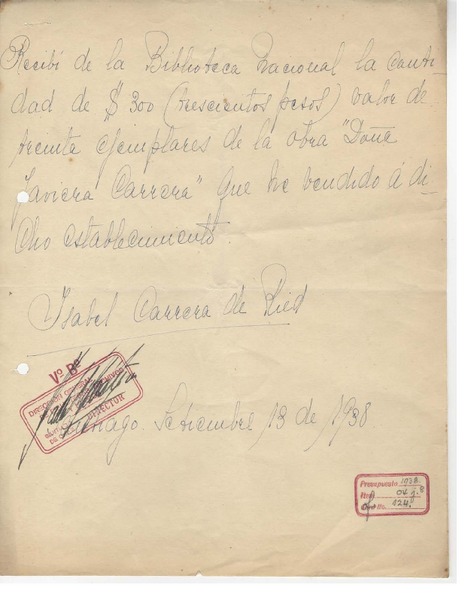 Recibí de la Biblioteca Nacional la canti
dad de $ 300 (trescientos pesos) valor de
treinta ejemplares de la obra "Doña
Javiera Carrera" que he vendido á di
cho establecimiento.
Isabel Carrera de Ried
Vº Bº
DIRECTOR
Santiago. Setiembre 13 de 1938
Presupuesto 1938
Item 04
Nº 124